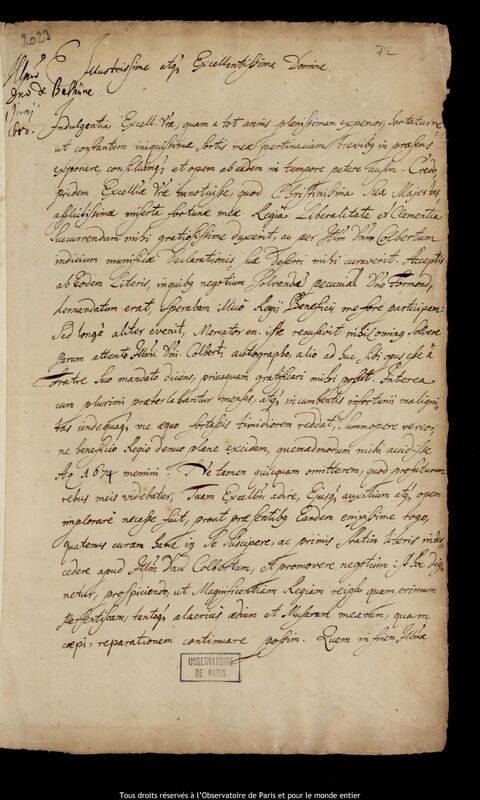 2023
72
Illmo
Dno de Bethune
Junij
1680.
Illustrissime atq, Excellentissime Domine.
Indulgentia Excell. Vrae, quam a tot annis plenissimam experior, hortatur me
ut constantem iniquissimae sortis meae pertinaciam brevibq in praesens
exponere, consiliumq, et opem ab eadem in tempore petere ausim. Credo
pridem Excelliae Vrae innotuisse, quod Christianissima Sua Majestas,
afflictissimae miserta fortunae meae Regia Liberalitate et Clementia
succurrendum mihi gratiosissime duxerit, ac per Illm Dnm Colbertum
indicium munificae declarationis suae deferri mihi curaverit. Acceptis
ab Eodem Literis, in quibq negotium solvendae pecuniae Dno Formond,
demandatum erat, sperabam illico Regii Beneficii me fore participem:
Sed longè aliter evenit, Mercator en. iste recusavit nihil omninò solvere
parum attento Illmi Dni Colberti autographo, alio ad huc sibi opus esse à
fratre suo mandato dicens, priusquam gratificari mihi possit. Interea
cum plurimi praeterlabantur menses, atq, incumbentis infortunii maligni-
tas undequaq, me aequo fortassis timidiorem reddat, summopere vereor
ne beneficio Regio denuo plane excidam, quemadmodum mihi accidisse
Ao 1674 memini. Ne tamen quicquam omitterem, quod profuturum
rebus meis videbatur, Tuam Excellm adire, Ejusq, auxilium atq, opem
implorare necesse fuit, prout praesentibq Eandem enixissime rogo,
quatenus curam hanc in se suscipere, ac primis statim literis inter-
cedere apud Illm Dnm Colbertum, et promovere negotium hoc dig-
netur, prospiciendo, ut Magnificentiam Regiam reipsa quam primum
persentiscam, tantoq, alacrius aedium et Musarum mearum, quam
caepi, reparationem continuare possim. Quem in finem Illmae
OBSERVATOIRE
DE PARIS
Tous droits réservés à l'Observatoire de Paris et pour le monde entier